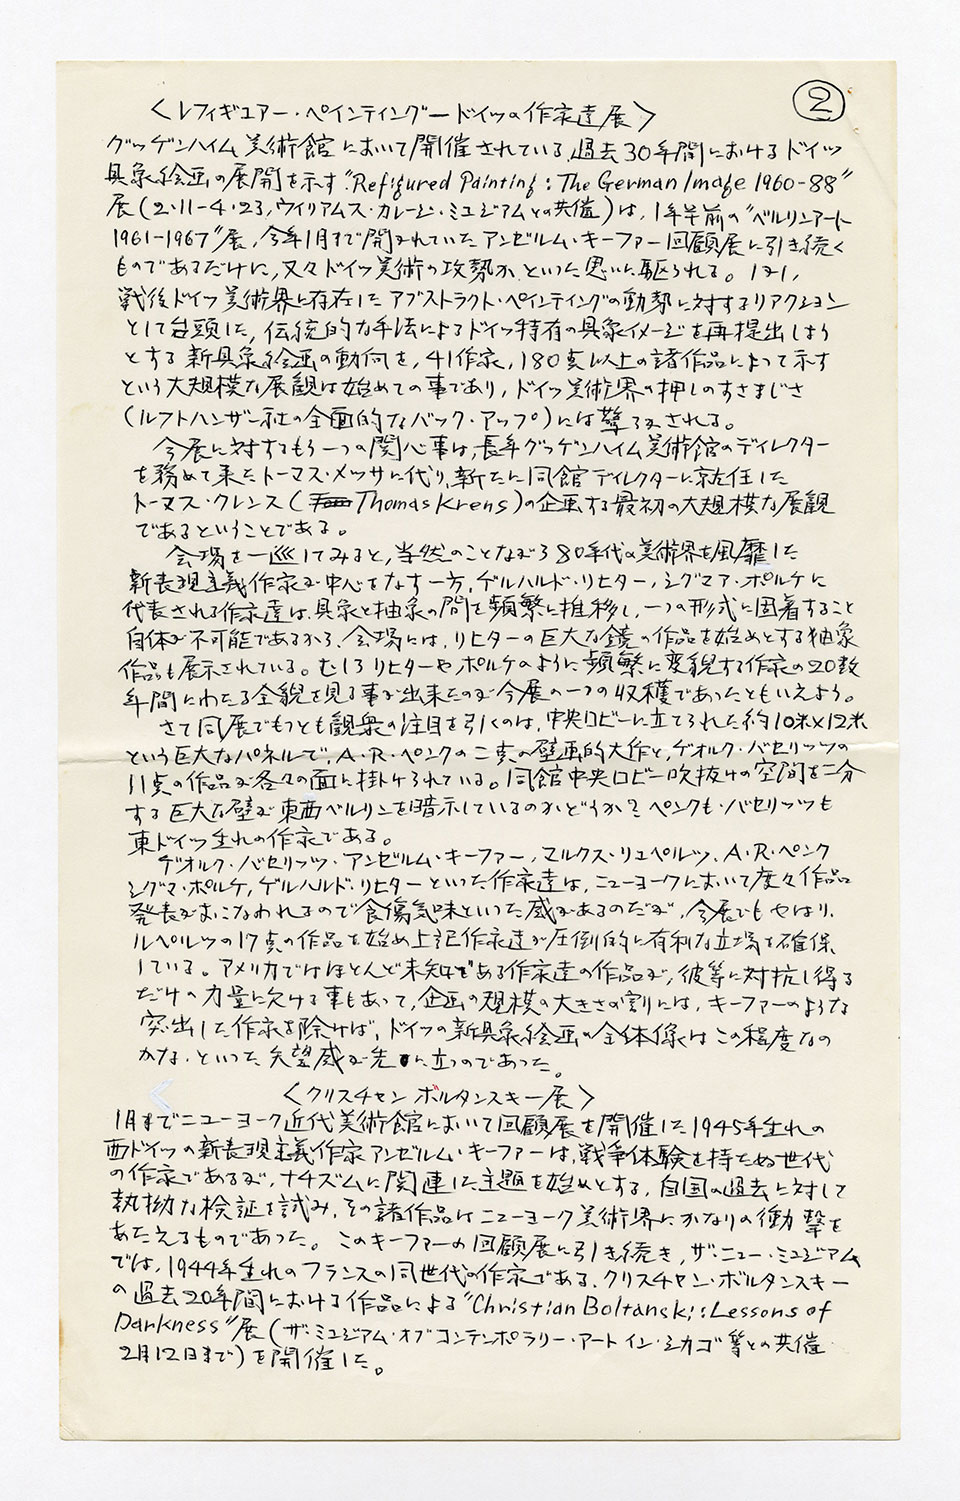 ②
〈レフィギュアー・ペインティングードイツの作家達展〉
グッゲンハイム美術館において開催されている、過去30年間におけるドイツ
具象絵画の展開を示す"Refigured Painting: The German Image 1960-88"
展(2・11-4・23, ウイリアムス・カレージ・ミュジアムとの共催)は, 1年半前の"ベルリンアート
1961-1967"展, 今年1月まで開かれていたアンゼルム・キーファー回顧展に引き続く
ものであるだけに, 又々ドイツ美術の攻勢か, といった思いに駆られる。しかし,
戦後ドイツ美術界に存在したアブストラクト・ペインティングの動勢に対するリアクション
として台頭した, 伝統的な手法によるドイツ特有の具象イメージを再提出しよう
とする新具象絵画の動向を, 41作家, 180点以上の諸作品によって示す
という大規模な展観は始めての事であり, ドイツ美術界の押しのすさまじさ
(ルフトハンザー社の全面的なバック・アップ)には驚ろかされる。
今展に対するもう一つの関心事は, 長年グッゲンハイム美術館のディレクター
を務めて来たトーマス・メッサに代り, 新たに同館ディレクターに就任した
トーマス・クレンス(Thomas Krens)の企画する最初の大規模な展観
であるということである。
会場を一巡してみると, 当然のことながら80年代の美術界を風靡した
新表現主義作家が中心をなす一方, ゲルハルド・リヒター, シグマア・ポルケに
代表される作家達は, 具象と抽象の間を頻繁に推移し, 一つの形式に固着すること
自体が不可能であるから, 会場には, リヒターの巨大な鏡の作品を始めとする抽象
作品も展示されている。むしろリヒターやポルケのように頻繁に変貌する作家の20数
年間にわたる全貌を見る事が出来たのが今展の一つの収穫であったともいえよう。
さて同展でもっとも観衆の注目を引くのは, 中央ロビーに立てられた約10米×12米
という巨大なパネルで, A・R・ペンクの二点の壁画的大作と, ゲオルク・バセリッツの
11点の作品が各々の面に掛けられている。同館中央ロビー吹抜けの空間を二分
する巨大な壁が東西ベルリンを暗示しているのかどうか? ペンクも・バセリッツも
東ドイツ生れの作家である。
ゲオルク・バセリッツ・アンゼルム・キーファー, マルクス・リュペルツ, A・R・ペンク
シグマ・ポルケ, ゲルハルド・リヒターといった作家達は, ニューヨークにおいて度々作品
発表がおこなわれるので食傷気味といった感があるのだが, 今展でもやはり,
ルペルツの17点の作品を始め上記作家達が圧倒的に有利な立場を確保
している。アメリカではほとんど未知である作家達の作品が, 彼等に対抗し得る
だけの力量に欠ける事もあって, 企画の規模の大きさの割には, キーファーのような
突出した作家を除けば, ドイツの新具象絵画の全体像はこの程度なの
かな, といった失望感が先に立つのであった。
〈クリスチャン ボルタンスキー展〉
1月までニューヨーク近代美術館において回顧展を開催した1945年生れの
西ドイツの新表現主義作家アンゼルム・キーファーは, 戦争体験を持たぬ世代
の作家であるが, ナチズムに関連した主題を始めとする, 自国の過去に対して
執拗な検証を試み, その諸作品はニューヨーク美術界にかなりの衝撃を
あたえるものであった。このキーファーの回顧展に引き続き, ザ・ニュー・ミュジアム
では, 1944年生れのフランスの同世代の作家である, クリスチャン・ボルタンスキー
の過去20年間における作品による"Christian Boltanski: Lessons of
Darkness"展(ザ・ミュジアム・オブ コンテンポラリー・アート イン・シカゴ等との共催
2月12日まで)を開催した。